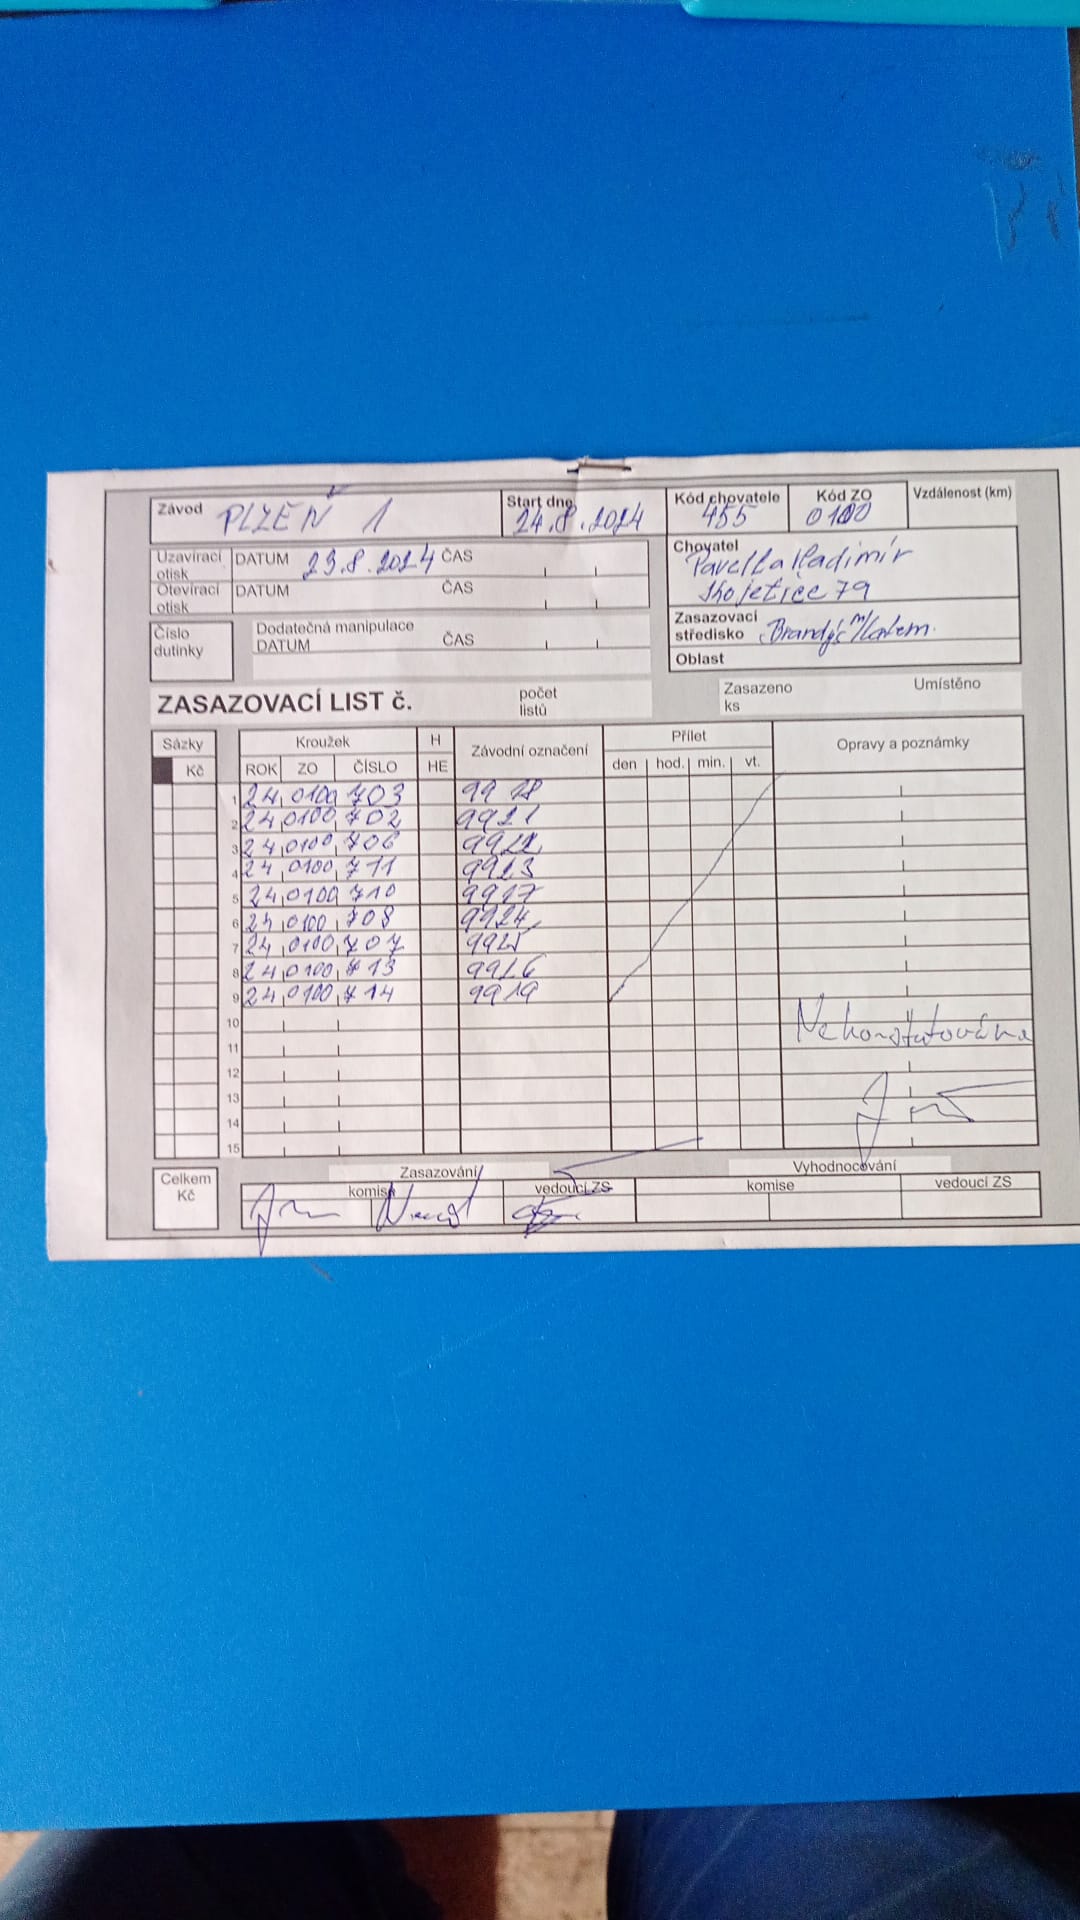 Závod PLZEŇ 1
Start dne 24.8.2024
Kód chovatele 455
Kód ZO 0100
Vzdálenost (km)
Uzavírací otisk DATUM 23.8.2024 ČAS
Otevírací otisk DATUM ČAS
Chovatel Pavelka Vladimír
79
Číslo dutinky
Dodatečná manipulace
DATUM ČAS
Zasazovací středisko Brandýs
Oblast
ZASAZOVACÍ LIST č.
počet listů
Zasazeno ks
Umístěno
Sázky Kroužek H Závodní označení Přílet Opravy a poznámky
Kč ROK ZO ČÍSLO HE den hod. min. vt.
1 24 0100 703
2 24 0100 702 9921
3 24 0100 706 9922
4 24 0100 711 9923
5 24 0100 710
6 24 0100 708 9924
7 24 0100 707 9925
8 24 0100 713 9926
9 24 0100 714 9919
10 Nekonstatováno
11
12
13
14
15
Celkem Kč
Zasazování Vyhodnocování
komise vedoucí ZS komise vedoucí ZS